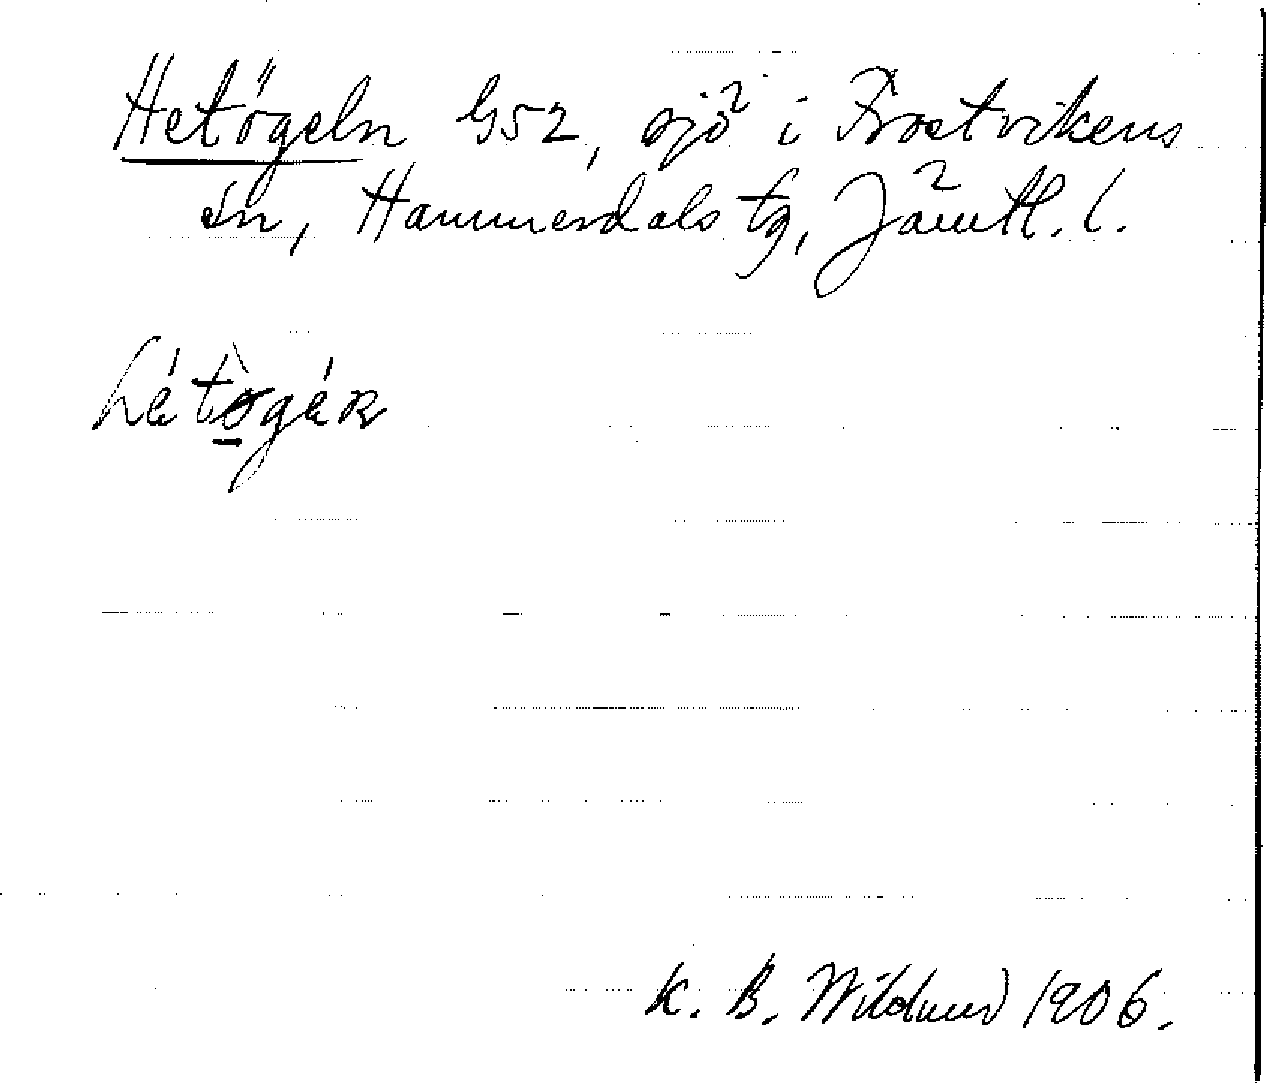 Hetögeln G52, sjö i Frostvikens
sn, Hammerdals tg, Jämtl. l.
K. B. Wiklund 1906.